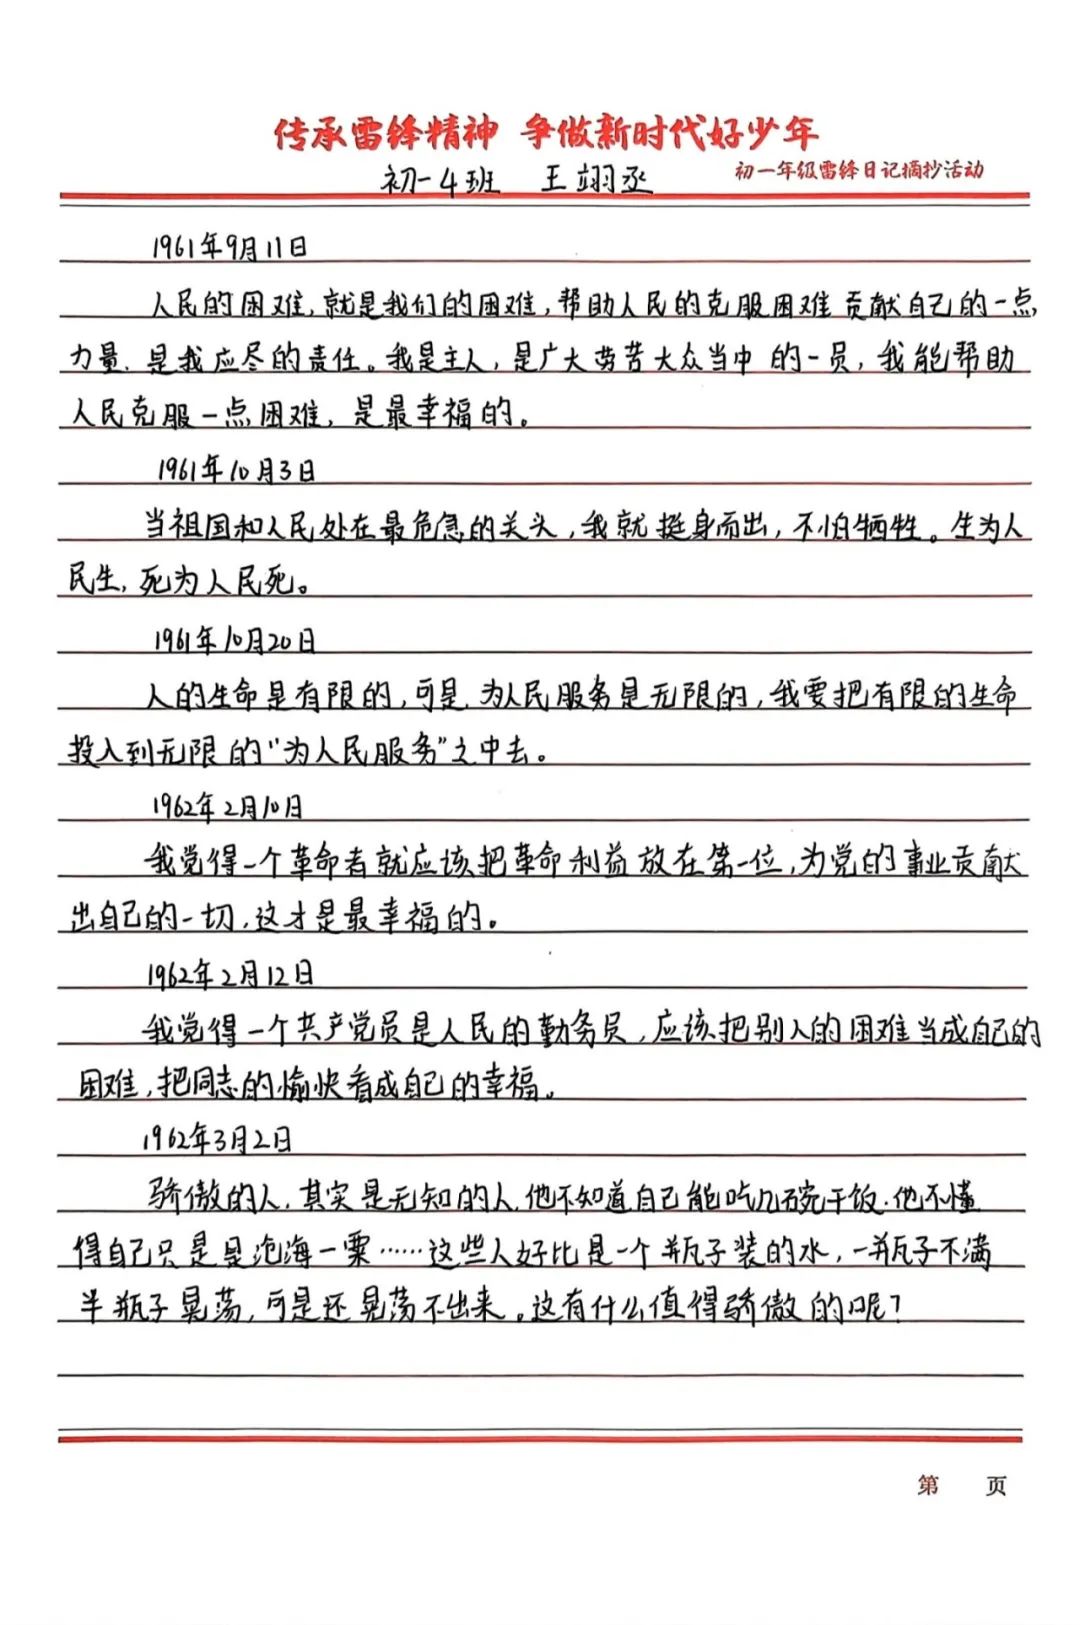 传承雷锋精神 争做新时代好少年
初一4班 王翊丞
初一年级雷锋日记摘抄活动
1961年9月11日
人民的困难,就是我们的困难,帮助人民的克服困难 贡献自己的一点
力量.是我应尽的责任。我是主人,是广大劳苦大众当中的一员,我能帮助
人民克服一点困难,是最幸福的。
1961年10月3日
当祖国和人民处在最危急的关头,我就挺身而出,不怕牺牲。生为人
民生,死为人民死。
1961年10月20日
人的生命是有限的,可是.为人民服务是无限的,我要把有限的生命
投入到无限的"为人民服务"之中去。
1962年2月10日
我觉得一个革命者就应该把革命利益放在第一位,为党的事业贡献
出自己的一切,这才是最幸福的。
1962年2月12日
我觉得一个共产党员是人民的勤务员,应该把别人的困难当成自己的
困难,把同志的愉快看成自己的幸福。
1962年3月2日
骄傲的人,其实是无知的人.他不知道自己能吃几碗干饭.他不懂
得自己只是是沧海一粟……这些人好比是一个瓶子装的水,一瓶子不满
半瓶子晃荡,可是还晃荡不出来。这有什么值得骄傲的呢?
第 页